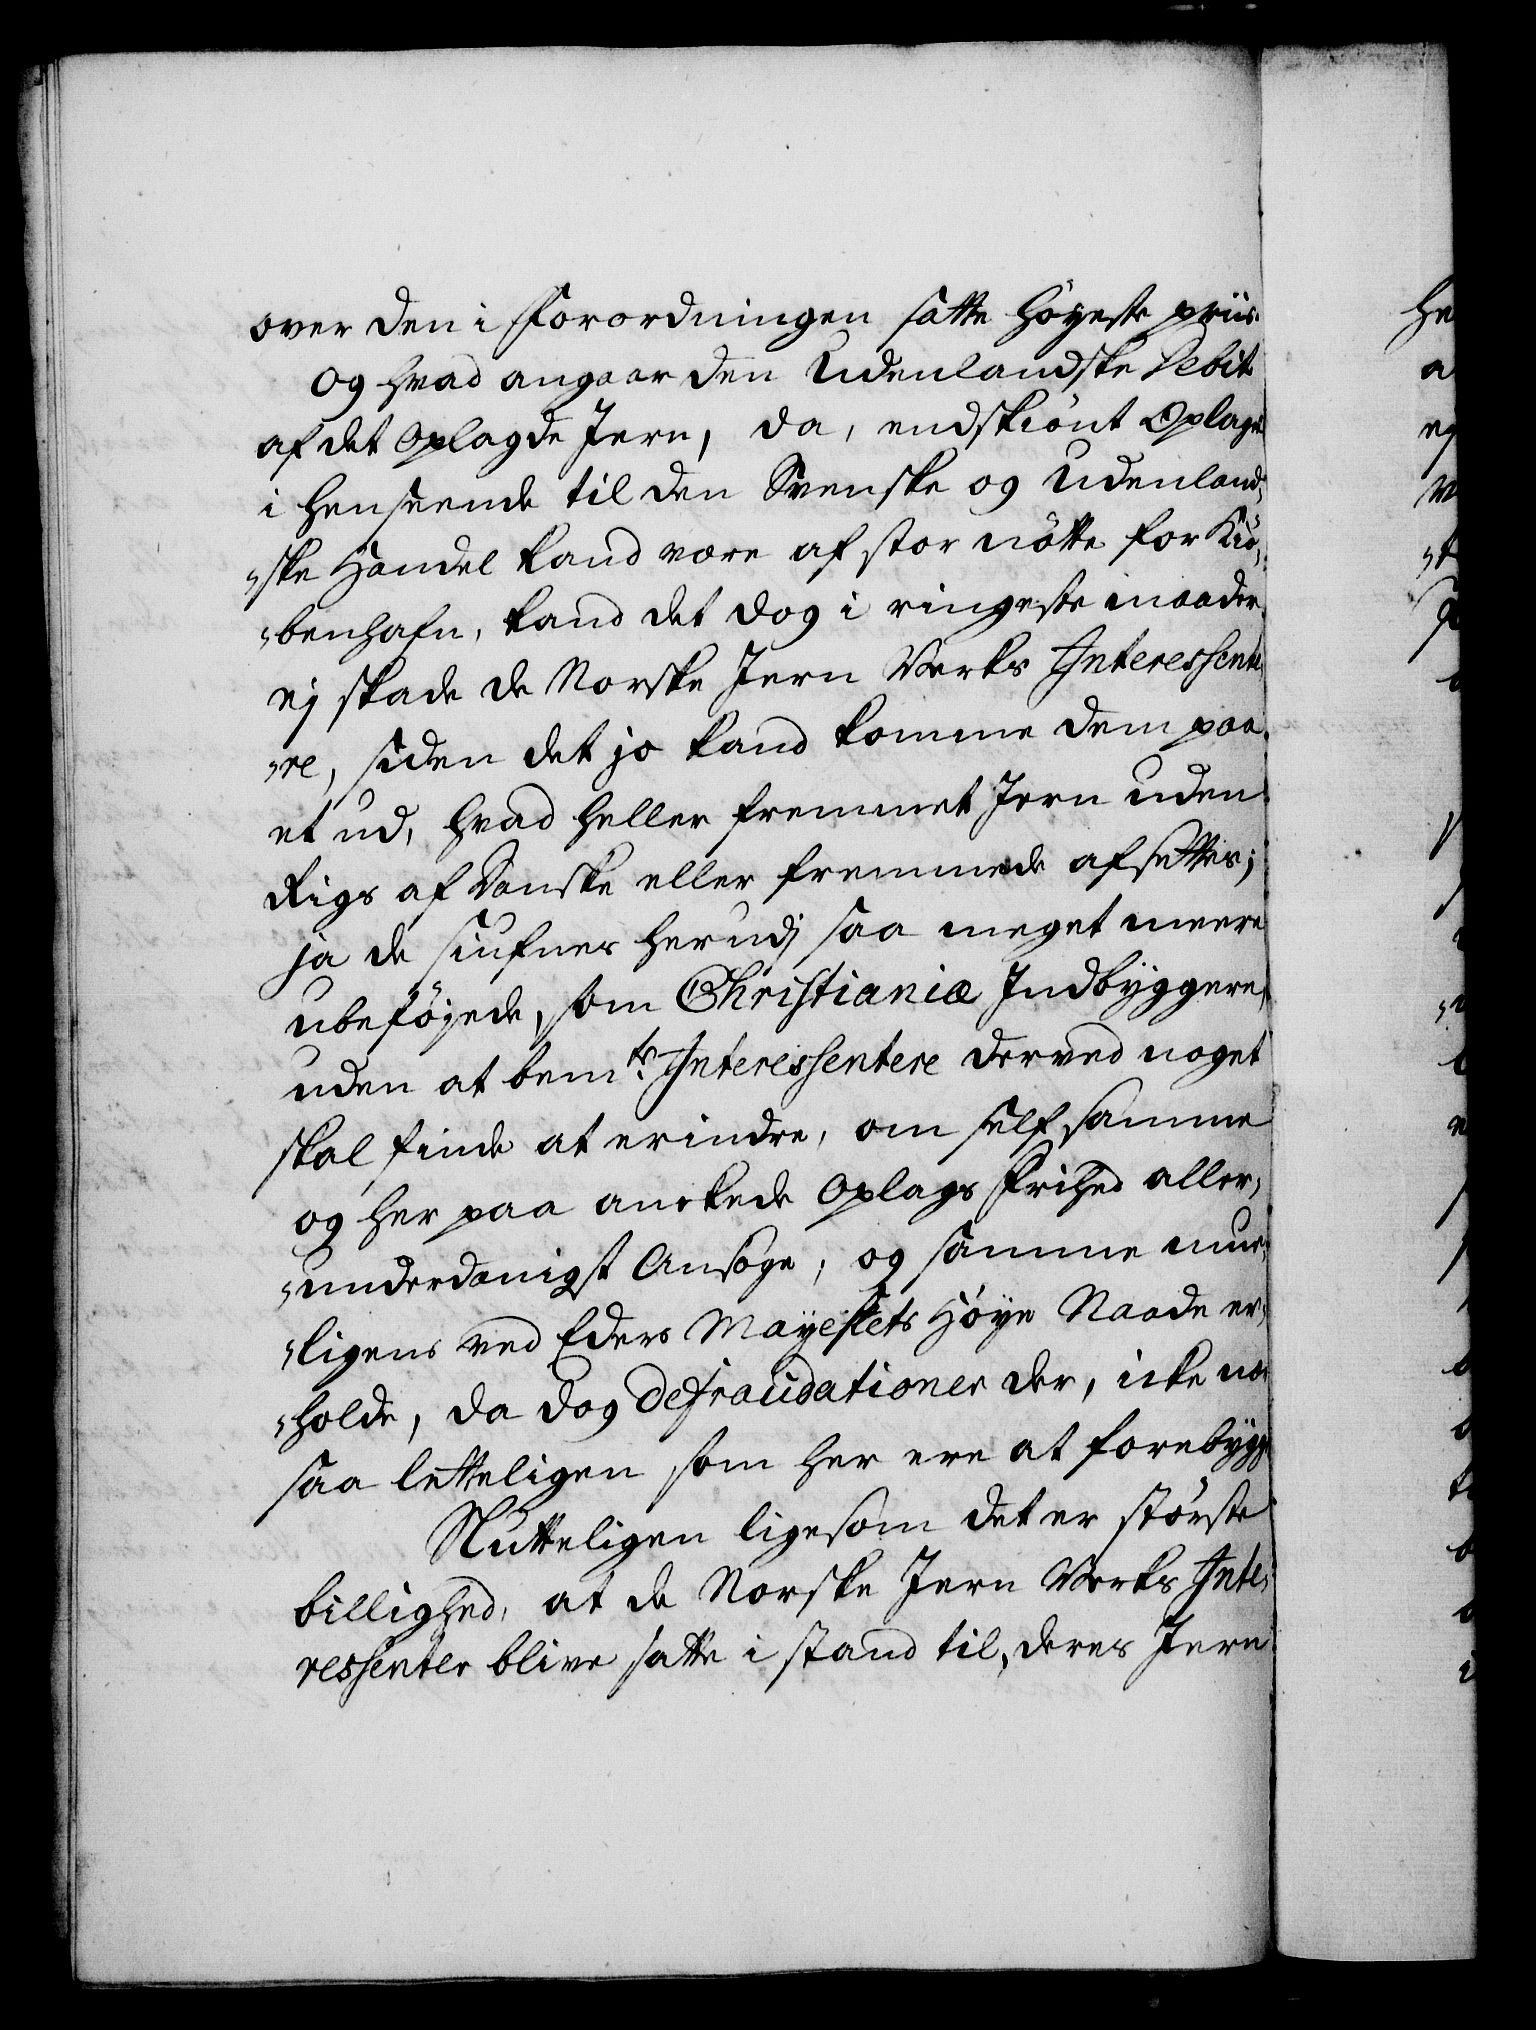 over den i Forordningen satte höyeste priis.
Og hvad angaar den Udenlandske Debit
af det Oplagde Jern, da, endskiönt Oplaget
i henseende til den Svenske og Udenland,
„ske Handel kand være af stor nötte for Kiö,
„benhafn, kand det dog i ringeste maader
ej skade de Norske Jern Werks Interessente,
„re, siden det jo kand komme dem paa
et ud, hvad heller fremmet Jern uden
Rigs af Danske eller fremmede afsettes;
ja de siufnes herudj saa meget meere
ubeföjede, som Christianiæ Indbyggere,
uden at bemte. Interessentere derved noget
skal finde at erindre, om self samme
og her paa ankede Oplags Frihed aller,
„underdanigst Ansöge, og samme mue,
„ligens ved Eders Mayestets Höye Naade er,
„holde, da dog defraudationer der, icke nær
saa letteligen som her ere at forebygge
Slutteligen ligesom det er störste
billighed, at de Norske Jern Werks Inte,
ressenter blive satte i stand til, deres Jern